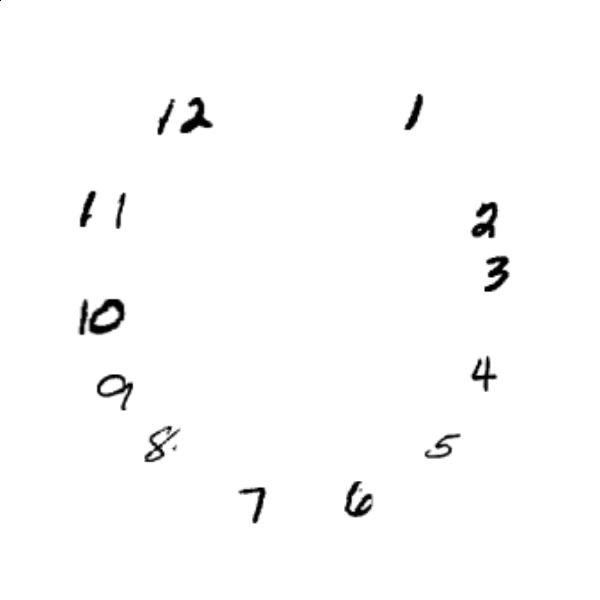 12 1
11 2
3
10
9 4
8 5
7 6